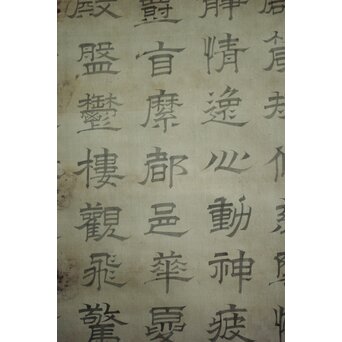 靜情逸心動神疲
爵自縻都邑華夏
殿盤鬱樓觀飛驚